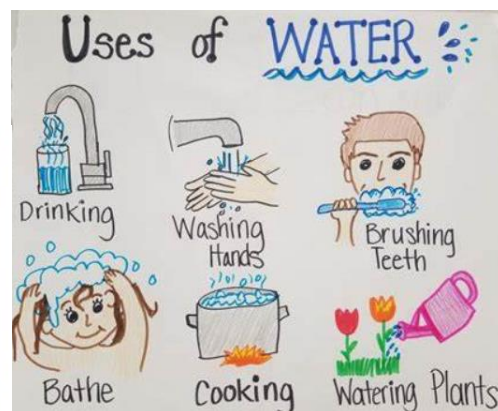 Uses of WATER
Drinking
Washing
Hands
Brushing
Teeth
Bathe
Cooking
Watering Plants